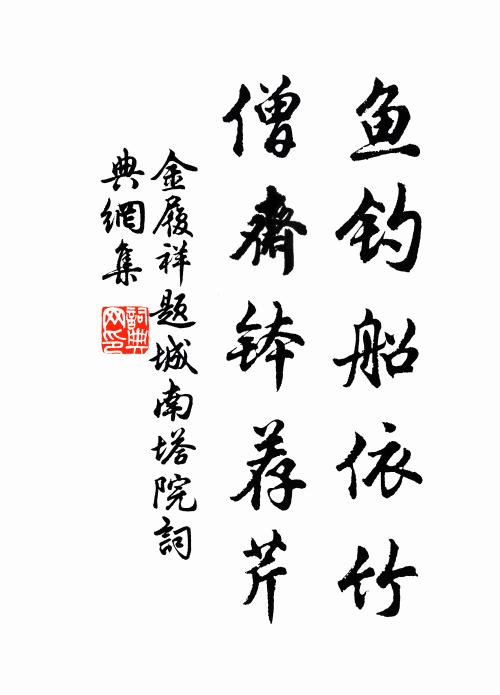 鱼钓船依竹
僧齋钵荐芹
金履祥题城南塔院詞
典網集
詞典网印